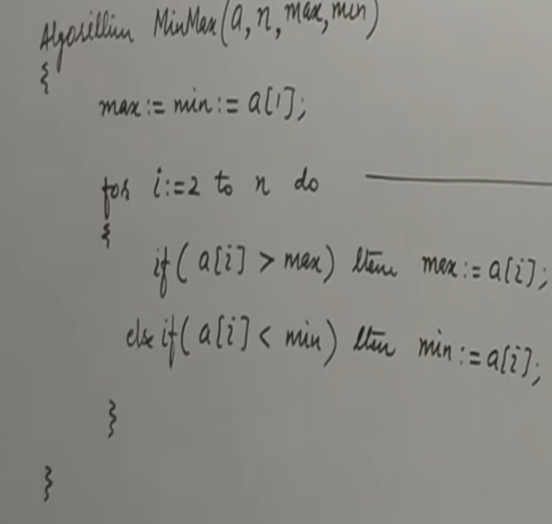 Algorithm MinMax(a, n, max, min)
{
max := min := a[1];
for i:=2 to n do
{
if ( a[i] > max) then max := a[i];
else if ( a[i] < min) then min := a[i];
}
}